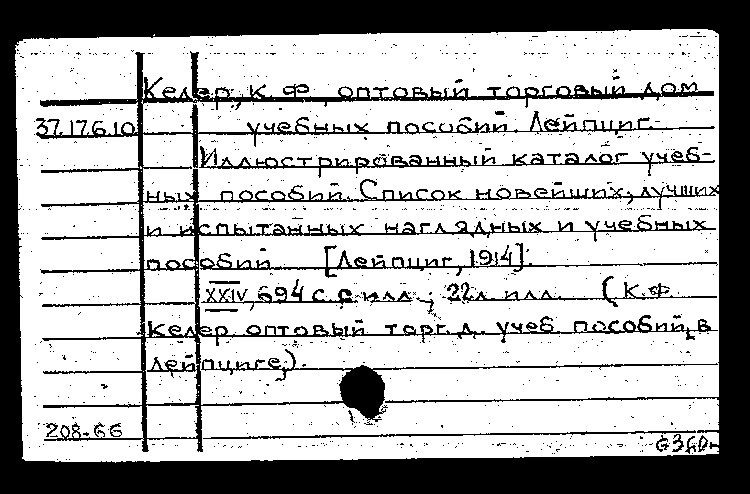 Келер, К. Ф., оптовый торговый дом
37.17.6.10 учебных пособий. Лейпциг.
Иллюстрированный каталог учеб-
ных пособий. Список новейших, лучших
и испытанных наглядных и учебных
пособий [Лейпциг, 1914].
XXIV, 694 с. с илл.; 22 л. илл. (К.Ф.
Келер оптовый торг. д. учеб. пособий, в
Лейпциге,).
208-66